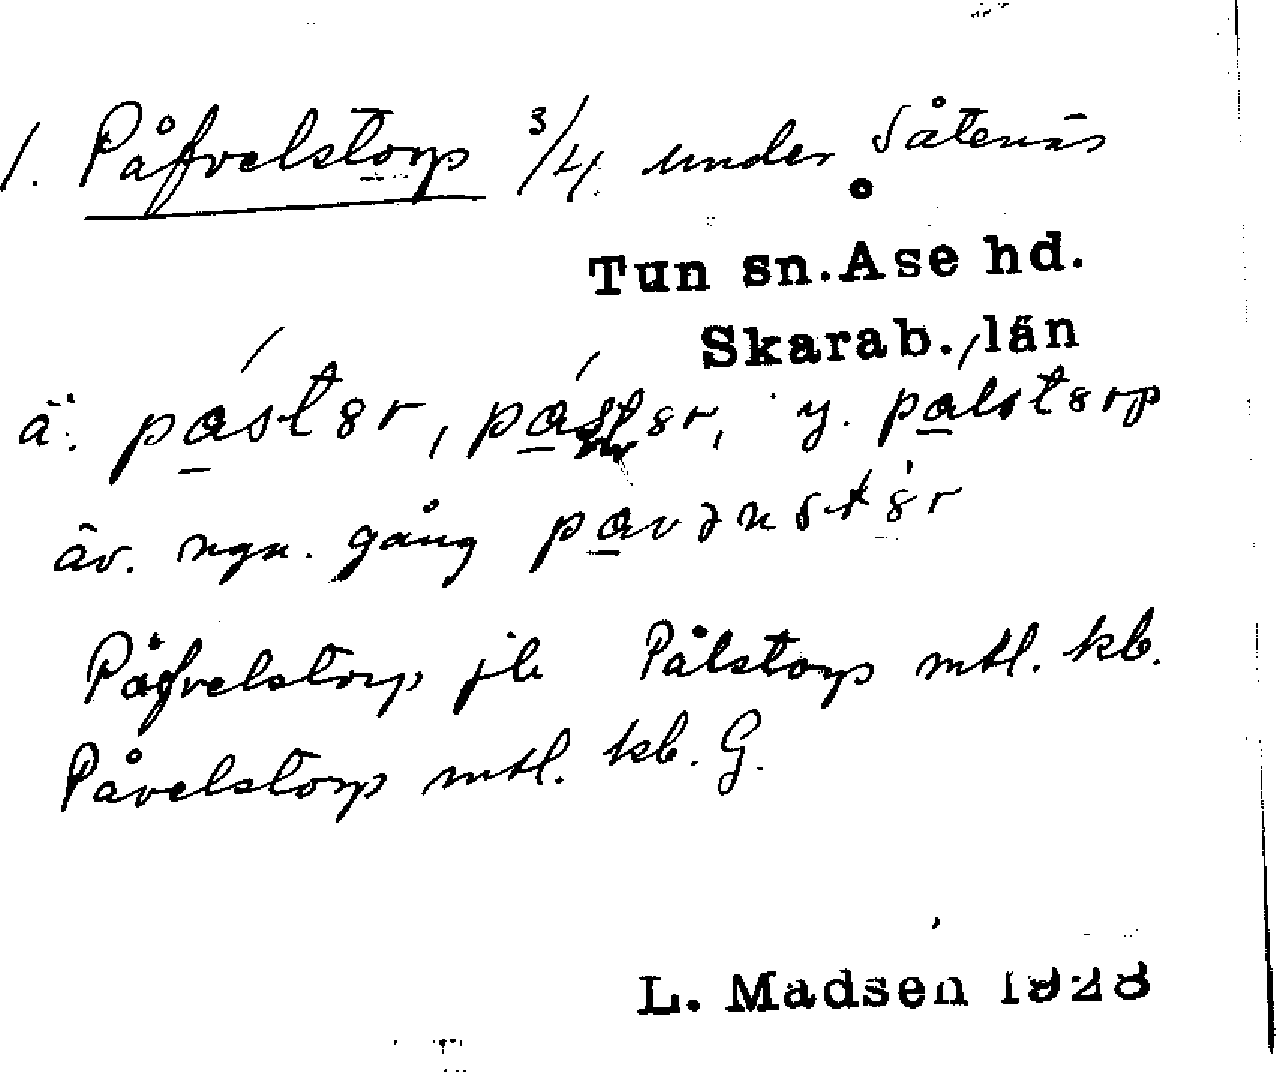 1. Påfvelstorp 3/4 under Såtenäs
Tun sn. Åse hd.
Skarab. län
ä. påst8r, y. pålst8rp
äv. ngn. gång påvənst8r
Påfvelstorp jb Pålstorp mtl. kb.
Påvelstorp mtl. kb. G.
L. Madsen 1928